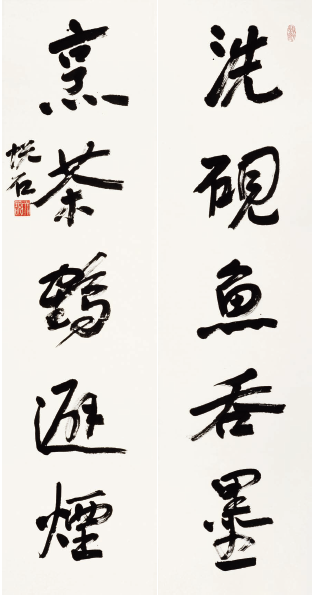 洗硯魚吞墨
烹茶鶴避煙
悦石